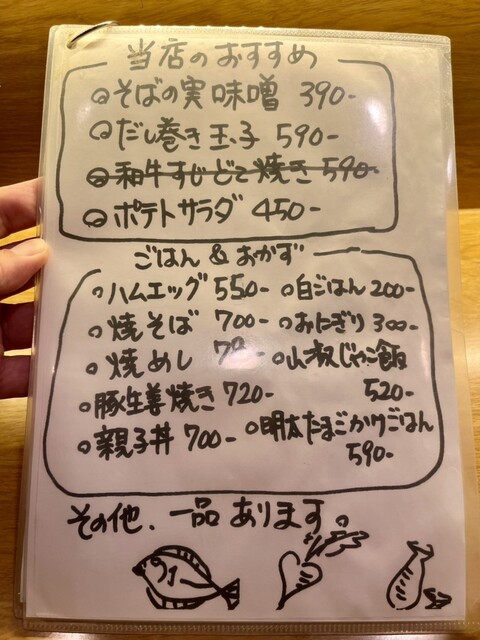 当店のおすすめ
そばの実味噌 390-
だし巻き玉子 590-
和牛すじどて焼き 590-
ポテトサラダ 450-
ごはん & おかず
ハムエッグ 550-
焼そば 700-
焼めし
豚生姜焼き 720-
親子丼 700-
白ごはん 200-
おにぎり 300-
山椒じゃこ飯
520-
明太たまごかけごはん
590-
その他、一品あります。